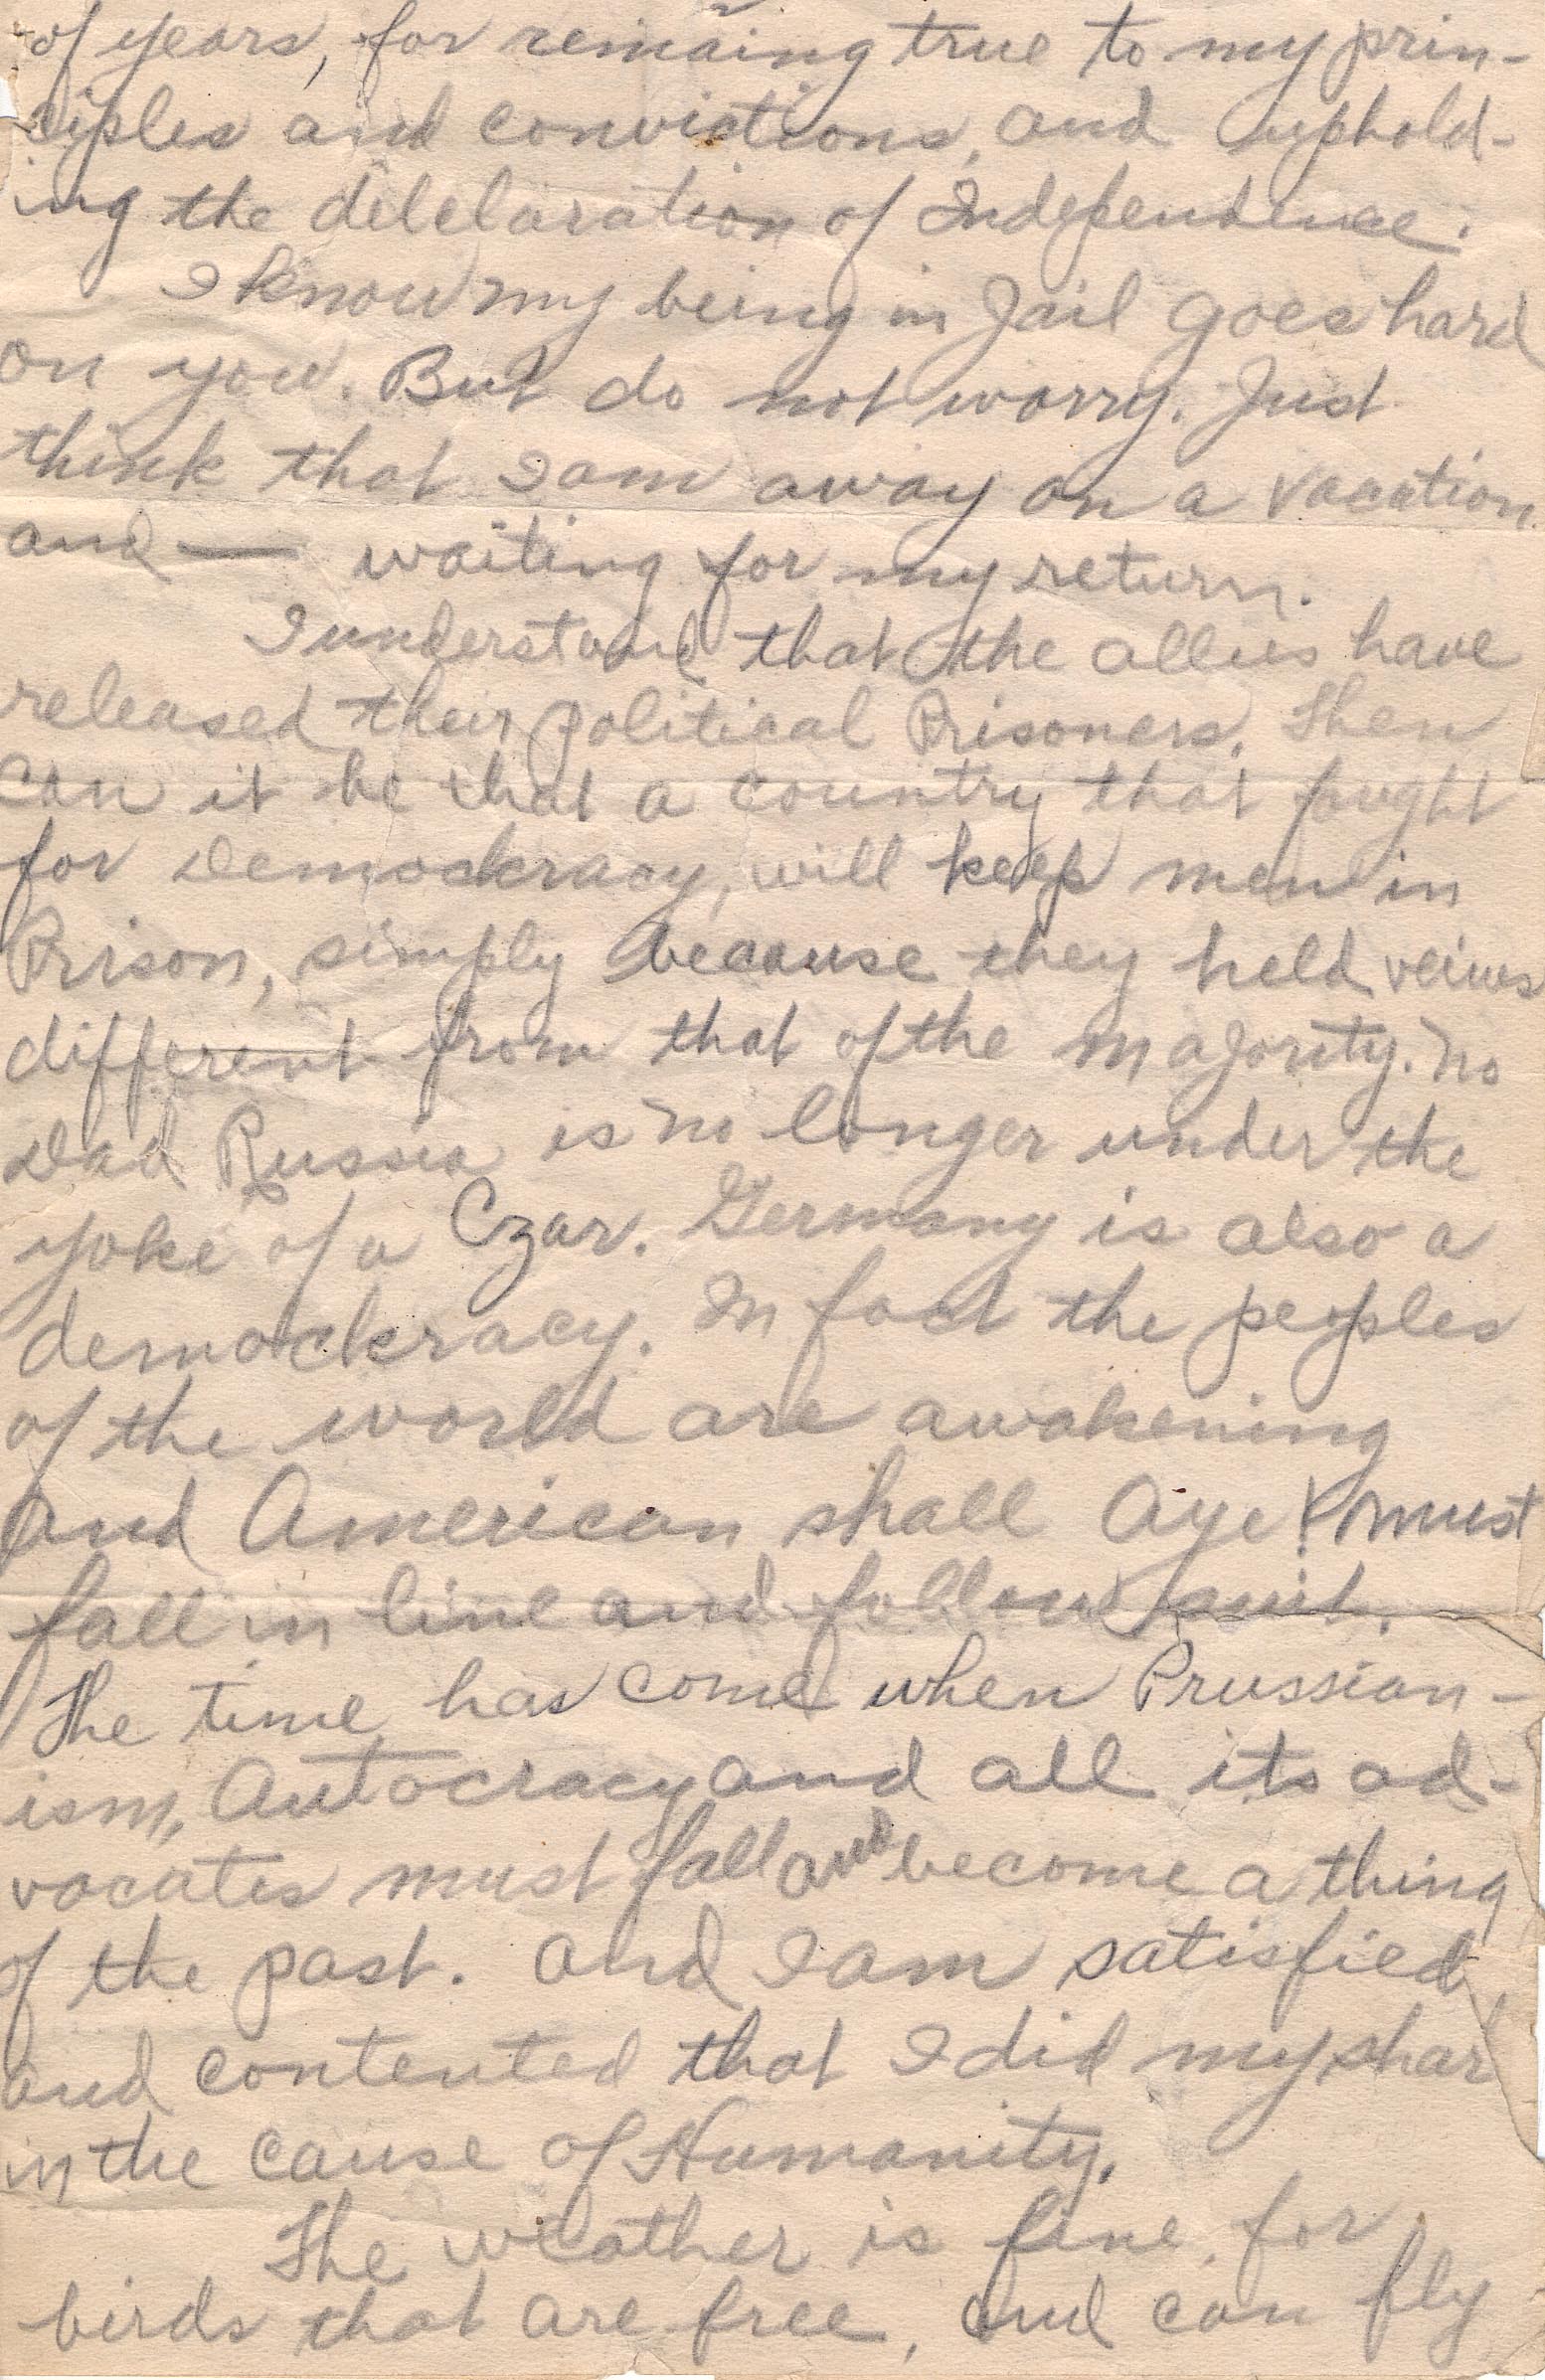 of years, for remaing true to my prin-
ciples and convictions, and uphold-
ing the delclaration of Independence.
I know my being in Jail goes hard
on you. But do not worry. Just
think that I am away on a vacation
and — waiting for my return.
I understand that the allies have
released their political Prisoners. Then
can it be that a country that fought
for Demockracy, will keep men in
Prison, simply because they held veiws
different from that of the majority. No
Dad Russia is no longer under the
yoke of a Czar. Germany is also a
demockracy. In fact the peoples
of the world are awakening
and American shall Aye! must
fall in line and follow suit.
The time has come when Prussian-
ism, Autocracy and all its ad-
vocates must fall and become a thing
of the past. And I am satisfied
and contented that I did my shar
in the cause of Humanity.
The weather is fine, for
birds that are free, and can fly